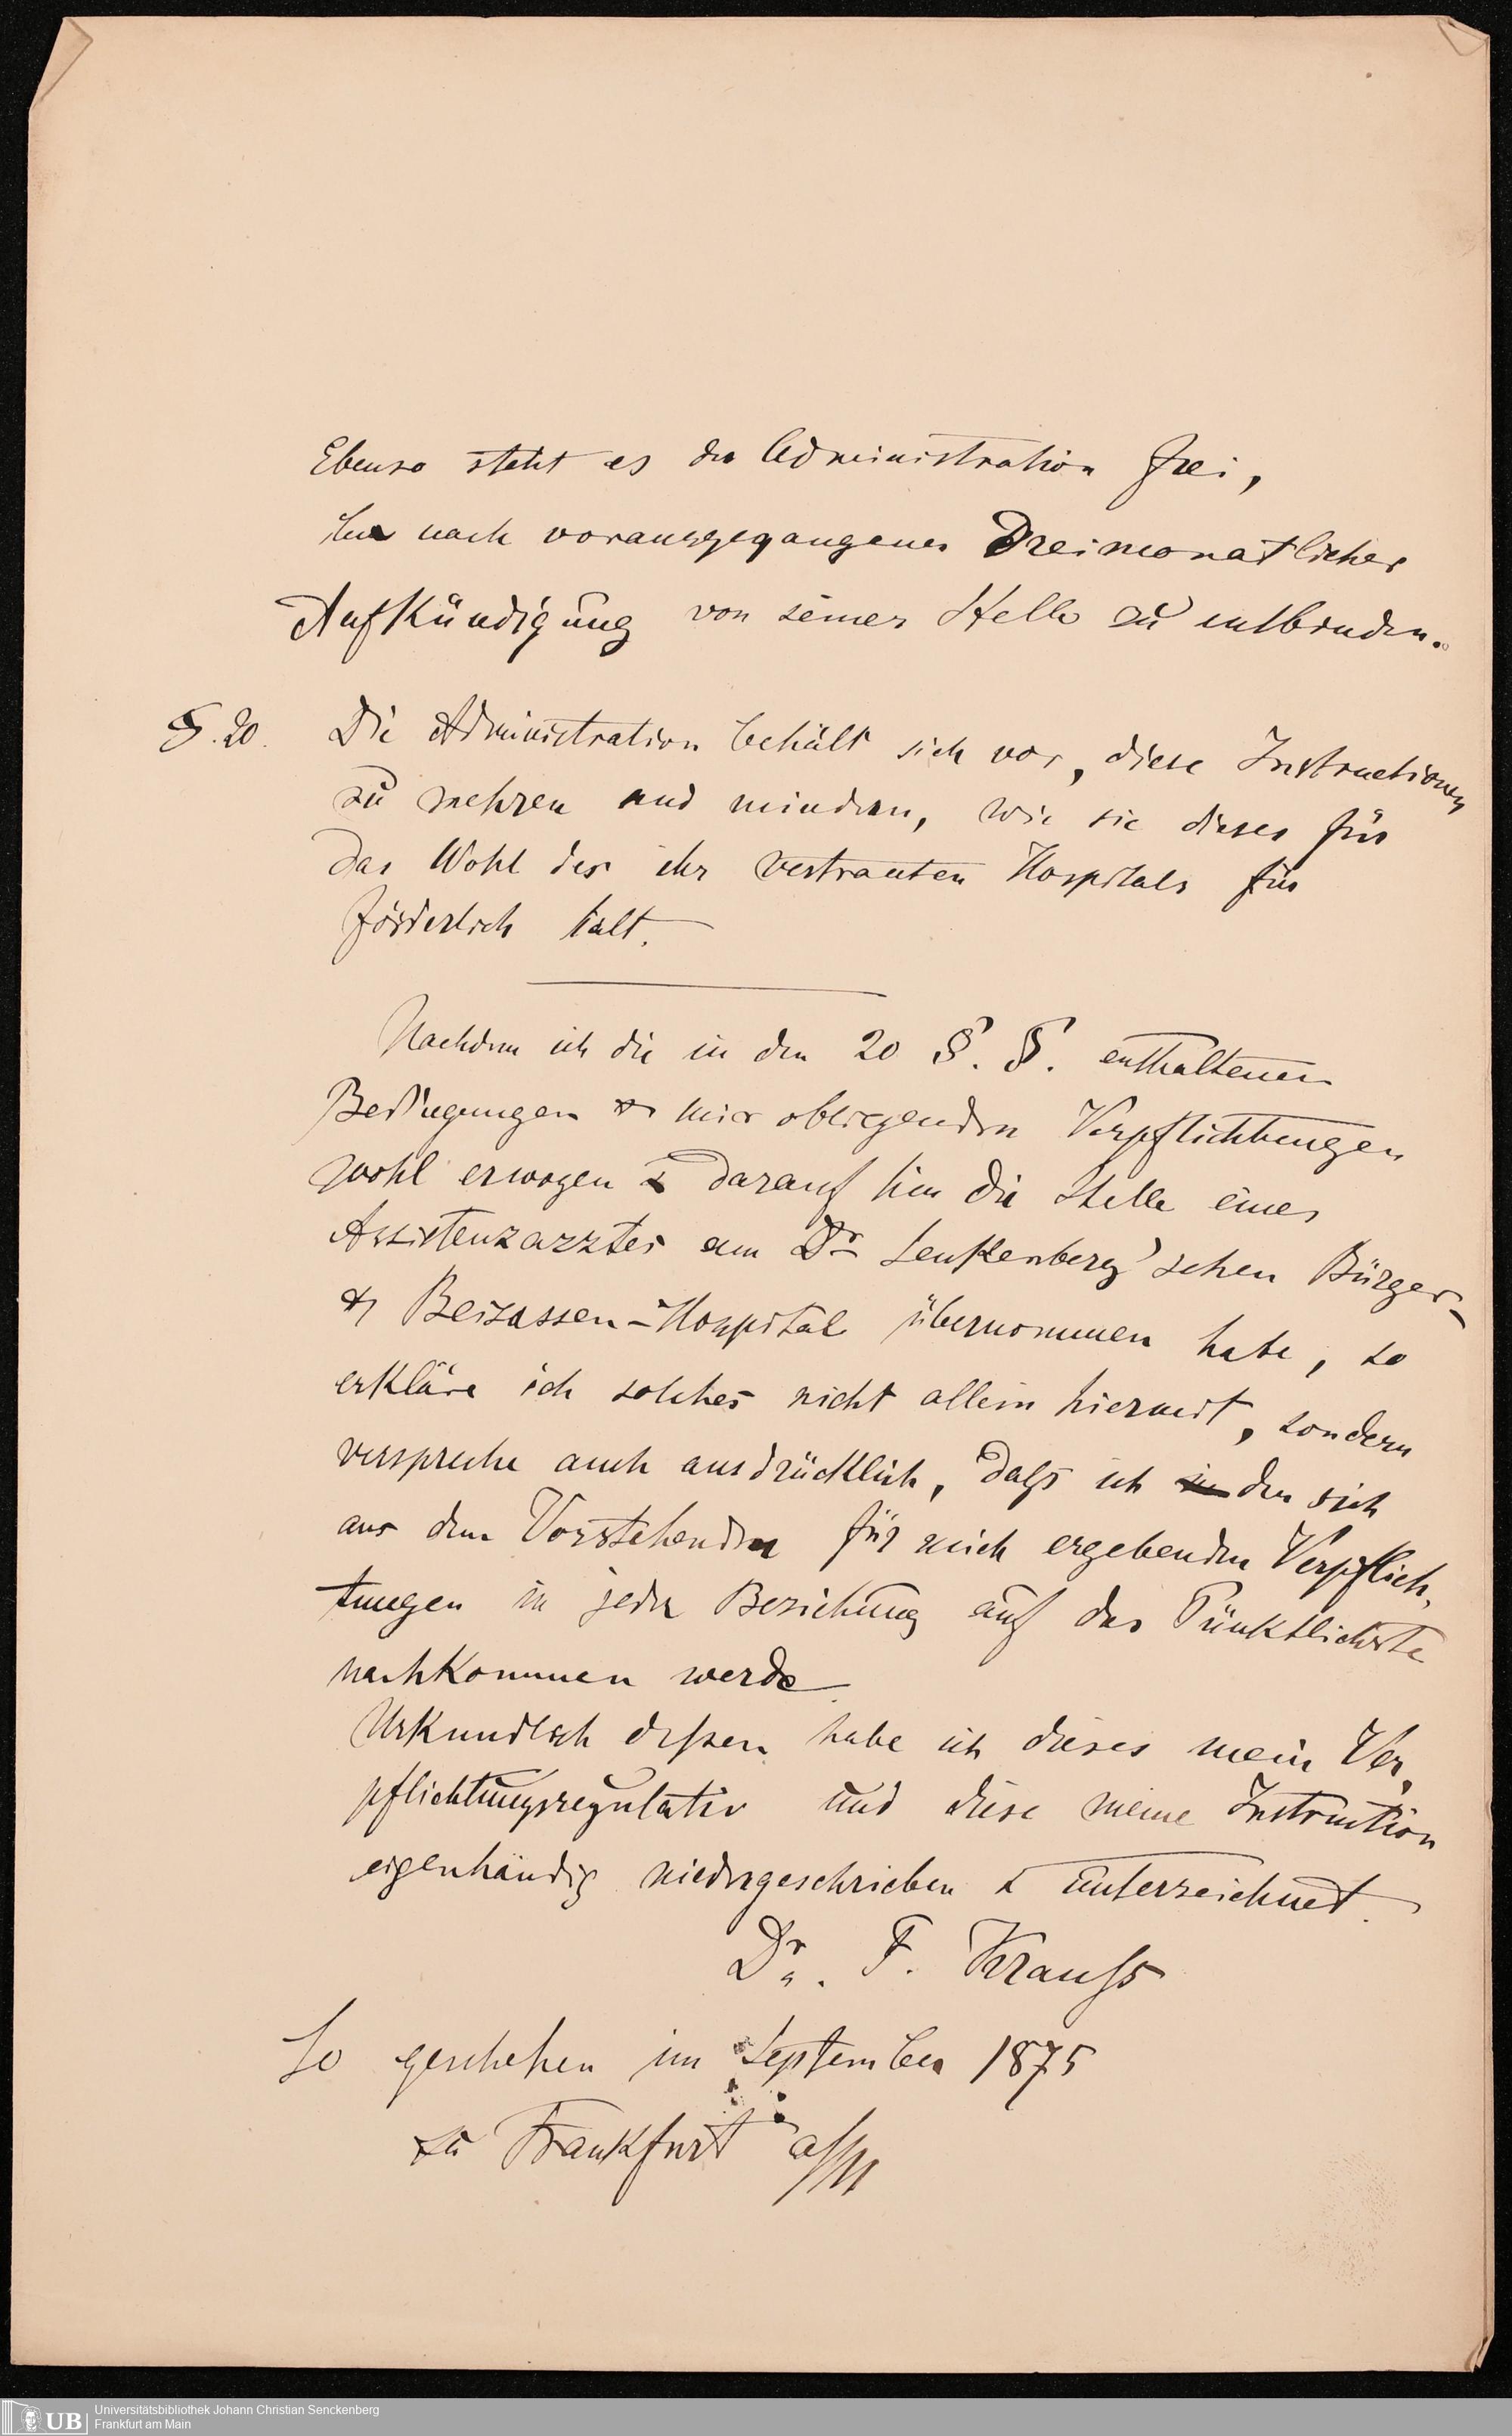 Ebenso steht es der Administration frei,
ihn nach vorausgegangener Dreimonatlicher
Aufkündigung von seiner Stelle zu entbinden.
§. 20. Die Administration behält sich vor, diese Instructionen
zu mehren und mindern, wie sie dieses für
das Wohl des ihr vertrauten Hospitals für
förderlich hält.
Nachdem ich die in den 20 §. §. enthaltenen
Bedingungen & mir obliegenden Verpflichtungen
wohl erwogen & darauf hin die Stelle eines
Assistenzarztes am Dr Senkenberg'schen Bürger-
& Beisassen-Hospital übernommen habe, so
erkläre ich solches nicht allein hiermit, sondern
verspreche auch ausdrücklich, daß ich den sich
aus dem Vorstehenden für mich ergebenden Verpflich-
tungen in jeder Beziehung auf das Pünktlichste
nachkommen werde.
Urkundlich dessen habe ich dieses mein Ver-
pflichtungsregulativ und diese meine Instruction
eigenhändig niedergeschrieben & unterzeichnet.
Dr. F. Krauß
So geschehen im September 1875
zu Frankfurt a/M
UB
Universitätsbibliothek Johann Christian Senckenberg
Frankfurt am Main